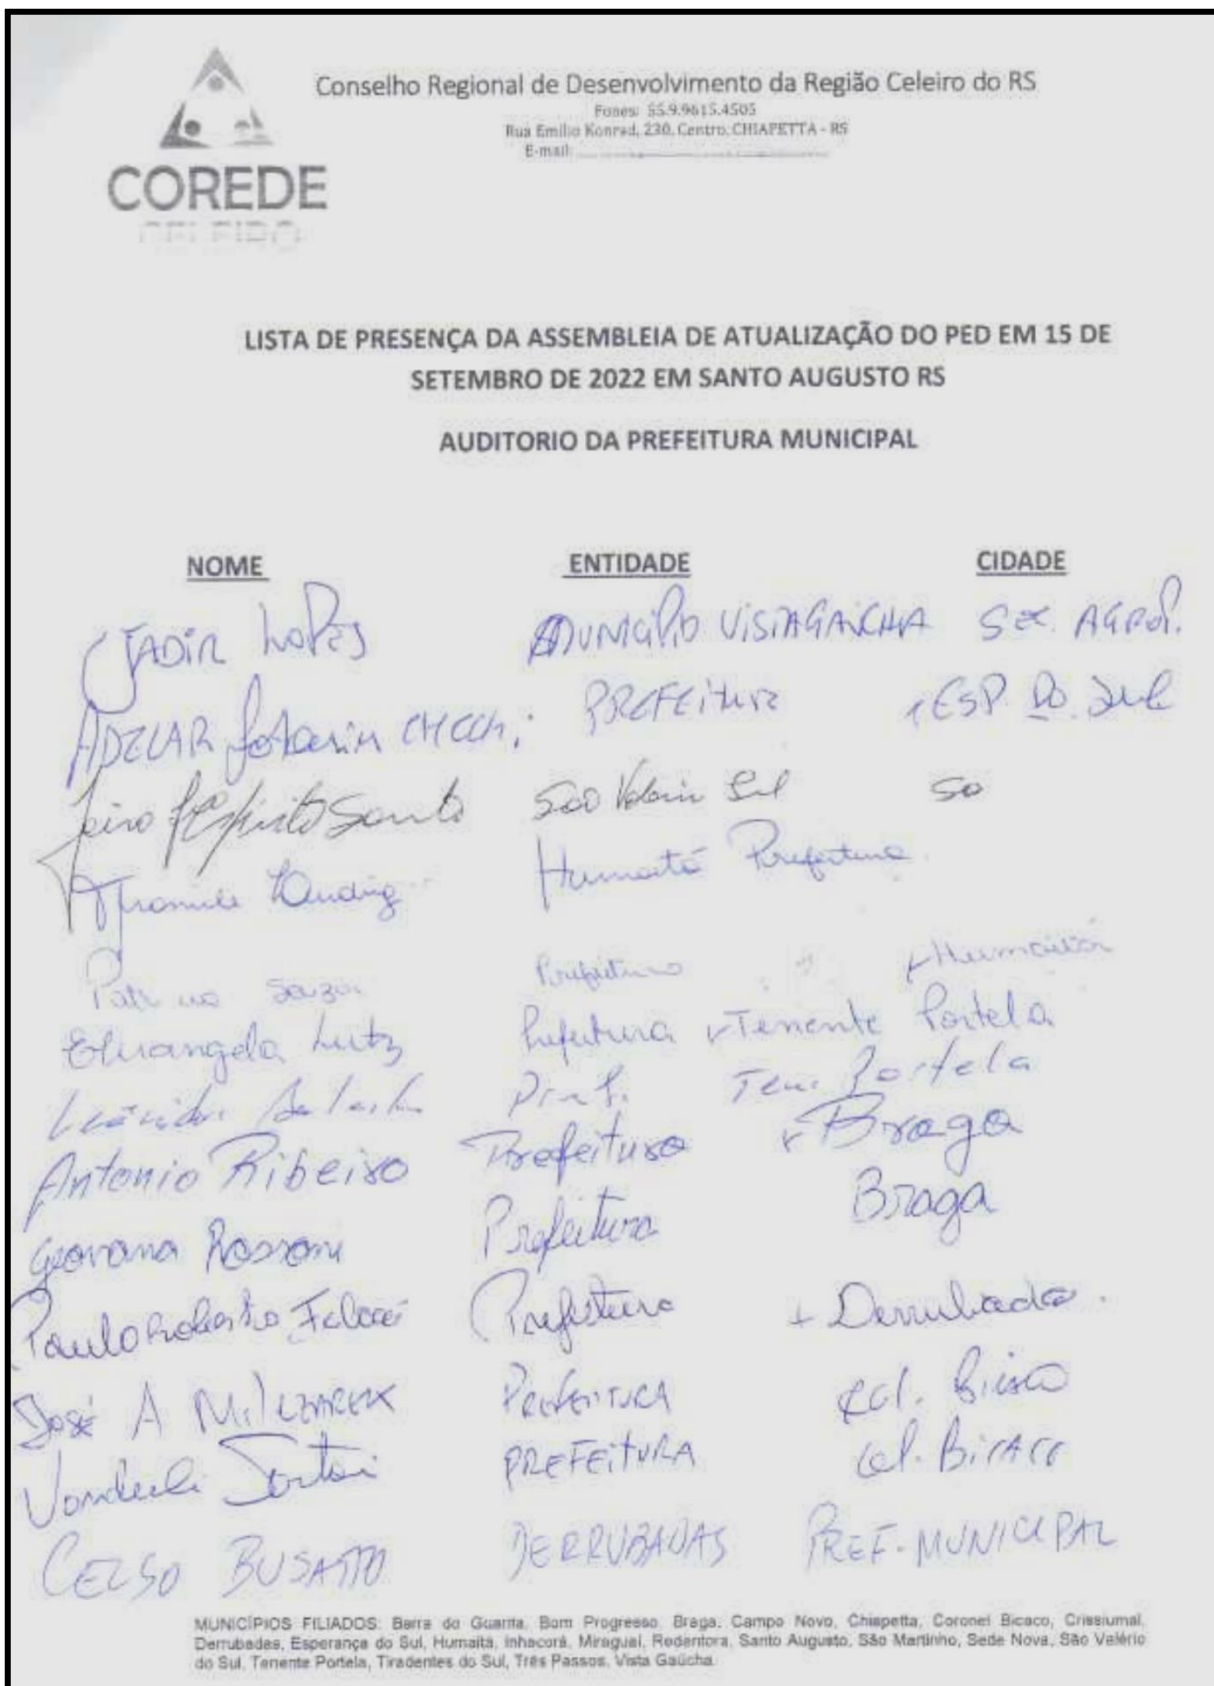 Conselho Regional de Desenvolvimento da Região Celeiro do RS
Fones: 55.9.9615.4505
Rua Emilio Konrad, 230, Centro, CHIAPETTA - RS
E-mail:
COREDE
CELEIRO
LISTA DE PRESENÇA DA ASSEMBLEIA DE ATUALIZAÇÃO DO PED EM 15 DE
SETEMBRO DE 2022 EM SANTO AUGUSTO RS
AUDITORIO DA PREFEITURA MUNICIPAL
NOME ENTIDADE CIDADE
JADIR LOPES MUNICÍPIO VISTA GAÚCHA
PREFEITURA ESP. DO SUL
Jairo Espirito Santo São Valerio Sul
Humaitá Prefeitura
Souza Prefeitura Humaitá
Elisangela Lutz Prefeitura Tenente Portela
Pref. Ten. Portela
Antonio Ribeiro Prefeitura Braga
Geovana Rossoni Prefeitura Braga
Paulo Roberto Prefeitura Derrubadas.
José A PREFEITURA Cel. Bicaco
PREFEITURA Cel. Bicaco
CELSO BUSATTO DERRUBADAS PREF. MUNICIPAL
MUNICÍPIOS FILIADOS: Barra do Guarita, Bom Progresso, Braga, Campo Novo, Chiapetta, Coronel Bicaco, Crissiumal,
Derrubadas, Esperança do Sul, Humaitá, Inhacorá, Miraguaí, Redentora, Santo Augusto, São Martinho, Sede Nova, São Valério
do Sul, Tenente Portela, Tiradentes do Sul, Três Passos, Vista Gaúcha.